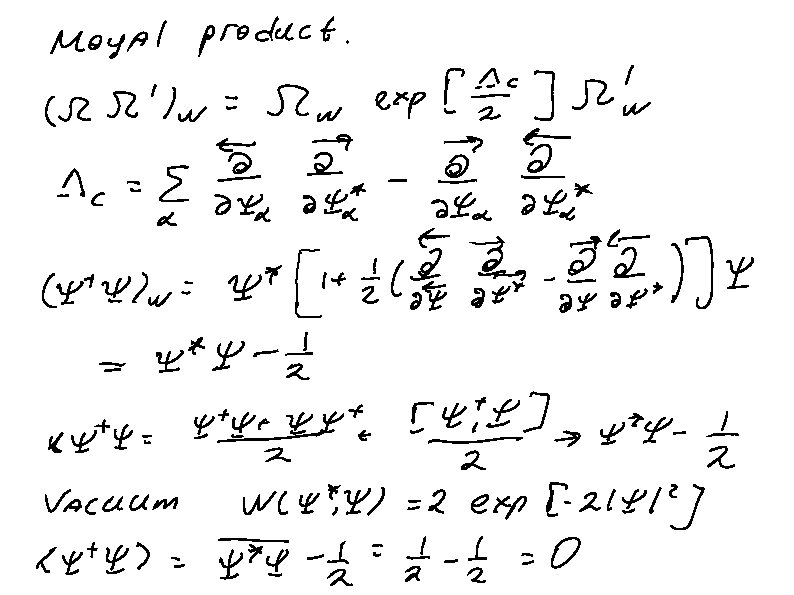 Moyal product.
(Ω Ω')_W = Ω_W exp[Λ_c/2] Ω'_W
Λ_c = Σ_α ∂⃖/∂Ψ_α ∂⃗/∂Ψ*_α - ∂⃗/∂Ψ_α ∂⃖/∂Ψ_α*
(Ψ†Ψ)_W = Ψ*[1+½(∂⃖/∂Ψ ∂⃗/∂Ψ* - ∂⃗/∂Ψ ∂⃖/∂Ψ*)]Ψ
= Ψ*Ψ - 1/2
Ψ†Ψ = (Ψ†Ψ + ΨΨ†)/2 + [Ψ†,Ψ]/2 → Ψ*Ψ - 1/2
Vacuum W(Ψ*,Ψ) = 2 exp[-2|Ψ|²]
⟨Ψ†Ψ⟩ = \overline{Ψ*Ψ} - 1/2 = 1/2 - 1/2 = 0